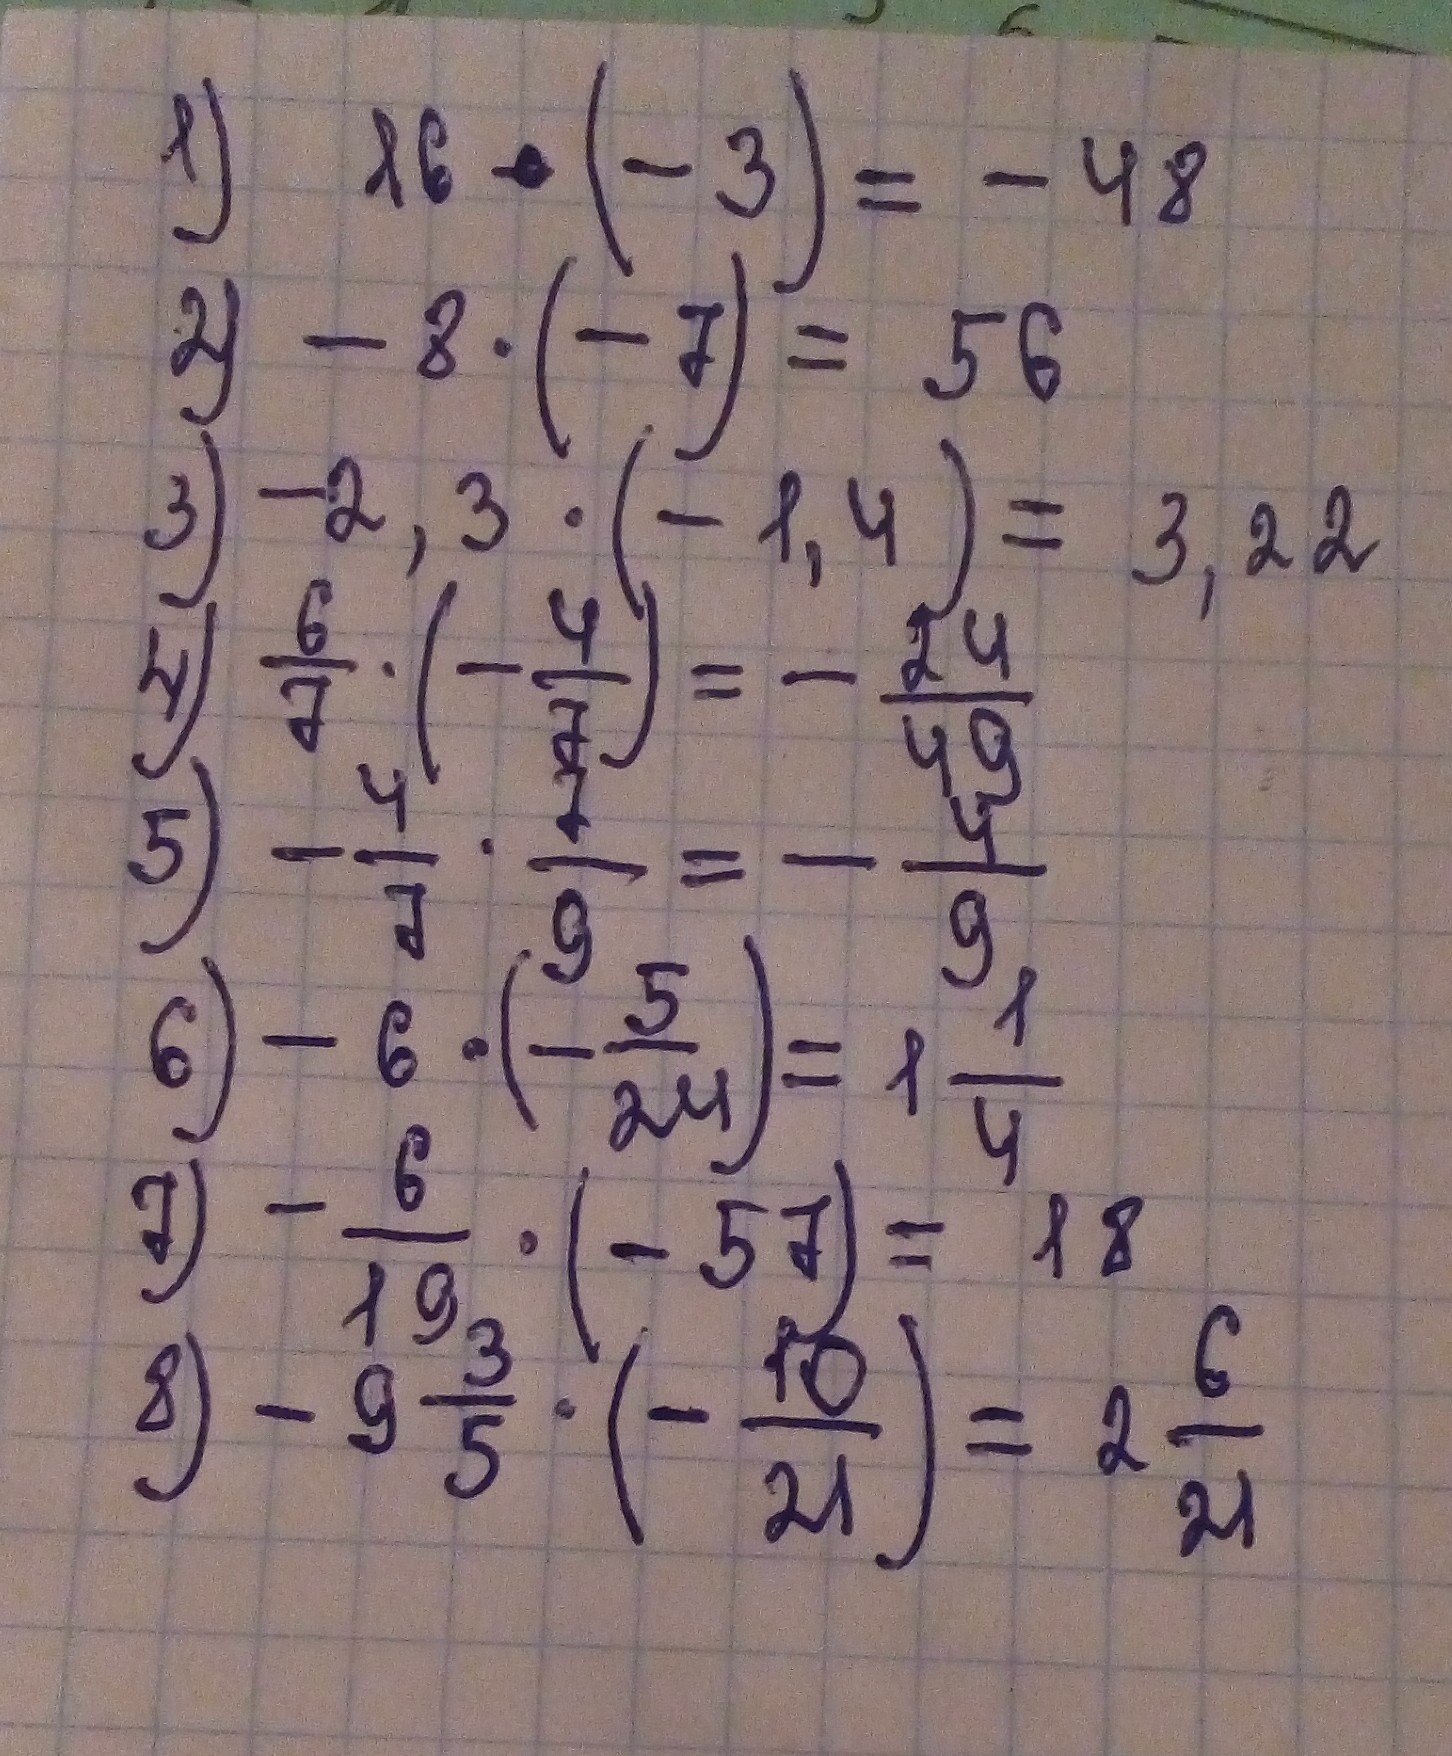 1) 16 · (-3) = -48
2) -8 · (-7) = 56
3) -2,3 · (-1,4) = 3,22
4) 6/7 · (-4/7) = -24/49
5) -4/7 · 7/9 = -4/9
6) -6 · (-5/24) = 1 1/4
7) -6/19 · (-57) = 18
8) -9 3/5 · (-10/21) = 2 6/21